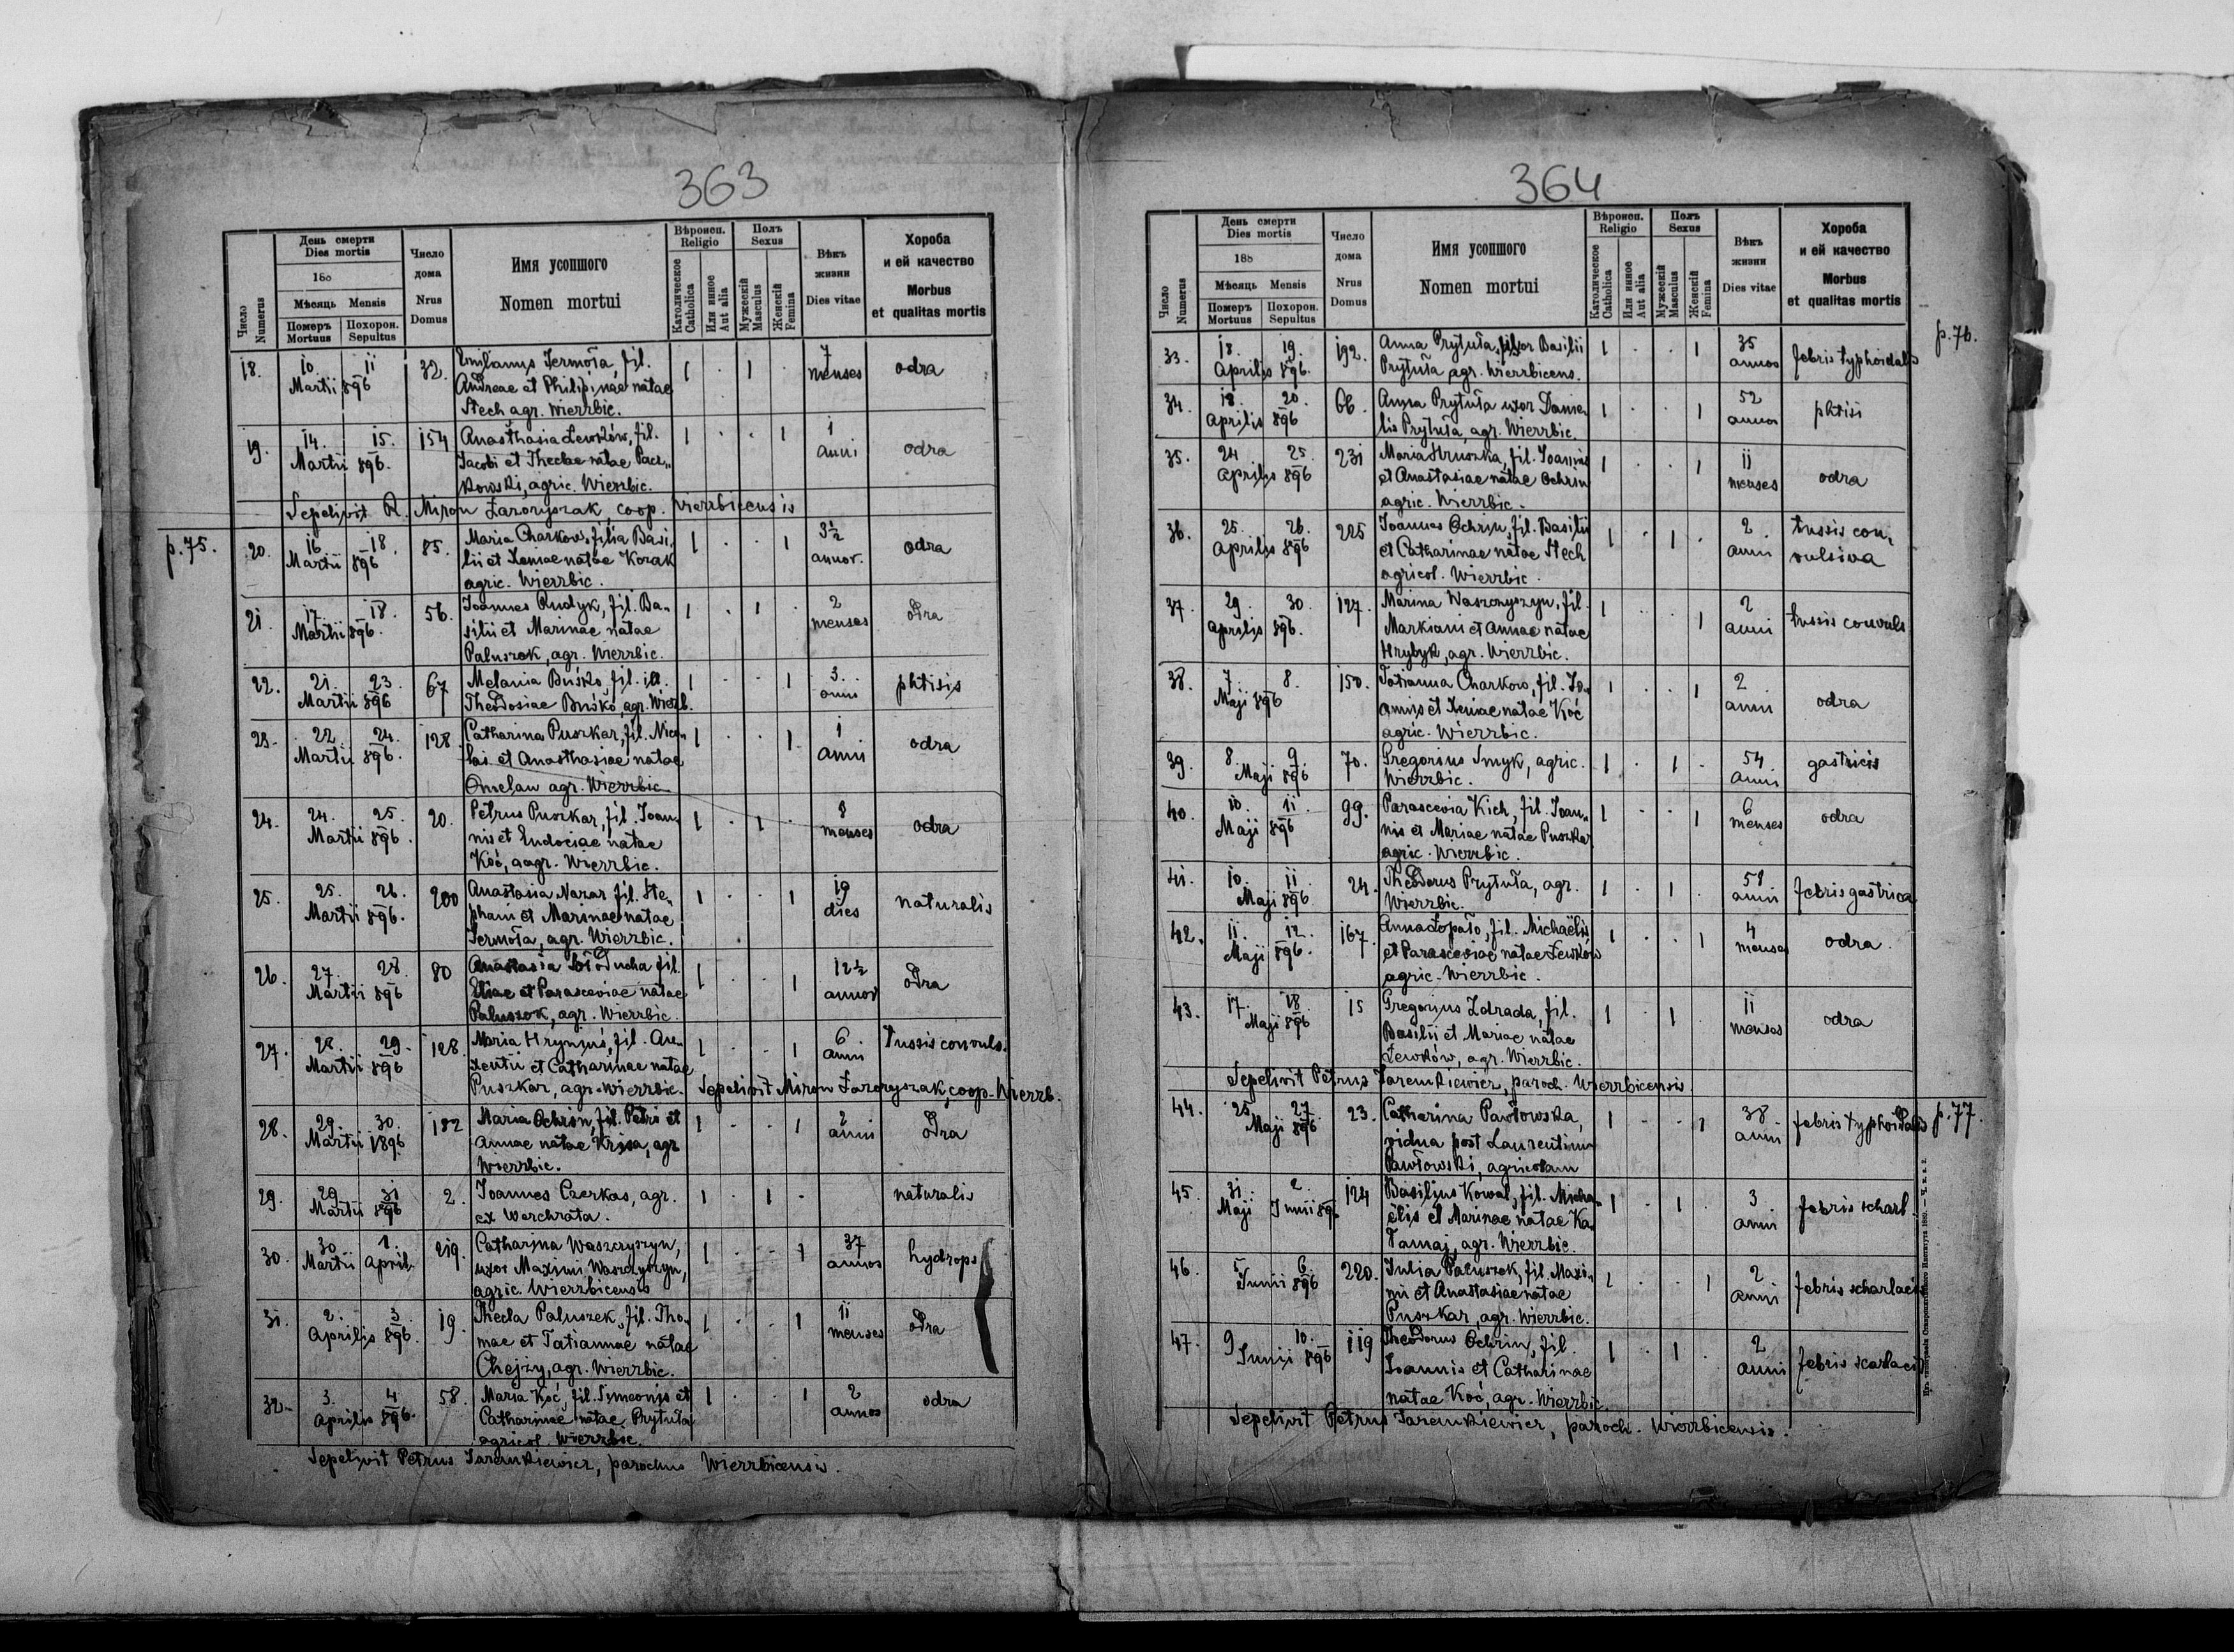 363
День смерти
Dies mortis
188
Мѣсяць Mensis
Число
Numerus
Померъ
Mortuus
Похорон.
Sepultus
Число
дома
Nrus
Domus
Имя усопшого
Nomen mortui
Вѣроисп.
Religio
Католическое
Catholica
Или инное
Aut alia
Полъ
Sexus
Мужескій
Masculus
Женскій
Femina
Вѣкъ
жизни
Dies vitae
Хороба
и ей качество
Morbus
et qualitas mortis
18. 10. 11 Martii 896 32. Emilianus Jermoła, fil. 1 . 1 . 7 menses odra
Andreae et Philipinae natae
Stech agr. Wierzbic.
19. 14. 15. Martii 896. 154 Anasthasia Lewków, fil. 1 . . 1 1 anni odra
Jacobi et Theclae natae Pacz„
kowski, agric. Wierzbic.
Sepelivit R. Miron Zazoryszak, coop. Wierzbicensis
p. 75.
20. 16 18. Martii 896 85. Maria Charkow, filia Basi„ 1 . . 1 3½ annor. odra
lii et Xeniae natae Kozak
agric. Wierzbic.
21. 17. 18. Martii 896. 56. Joannes Rudyk, fil. Ba„ 1 . 1 . 2 menses odra
silii et Marinae natae
Paluszok, agr. Wierzbic.
22. 21. 23. Martii 896 67 Melania Buśko, fil. ill. 1 . . 1 3. anni phtisis
Theodosiae Buśko, agr. Wierzb.
23. 22 24. Martii 896. 128. Catharina Puszkar, fil. Nico„ 1 . . 1. 1 anni odra
lai et Anasthasiae natae
Omelan agr. Wierzbic.
24. 24. 25. Martii 896. 20. Petrus Puszkar, fil. Joan„ 1 . 1 . 8 menses odra
nis et Eudociae natae
Koć, aagr. Wierzbic.
25. 25. 26. Martii 896. 200 Anastasia Nazar fil. Ste„ 1 . . 1 19 dies naturalis
phani et Marinae natae
Jermoła, agr. Wierzbic.
26. 27. 28. Martii 896 80 Anastasia fil. 1 . . 1 12½ annor odra
Eliae et Parasceviae natae
Paluszok, agr. Wierzbic.
27. 28. 29. Martii 896 128. Maria Hryniuś, fil. 1 . . 1 6. anni Tussis convuls.
et Catharinae natae
Puszkar, agr. Wierzbic. Sepelivit Miron Zazoryszak, coop. Wierzb.
28. 29. 30. Martii 1896. 182 Maria Ochrin, fil. Petri et 1 . . 1 2 anni odra
Annae natae Krisa, agr
Wierzbic.
29. 29 31 Martii 896 2. Joannes Czerkas, agr. 1 . 1 . naturalis
ex Werchrata.
30. 30 1. Martii April. 219. Catharina Waszczyszyn, 1 . . 1 37 annos hydrops
uxor Maximi Waszczyszyn,
agric. Wierzbicensis
31. 2. 3. Aprilis 896. 19. Thecla Paluszek, fil. Tho„ 1 . . 1 11 menses odra
mae et Tatiannae natae
Chejzy, agr. Wierzbic.
32. 3. 4 Aprilis 896. 58. Maria Koć, fil. Simeonis et 1 . . 1 2 annos odra
Catharinae natae Prytuła
agricol. Wierzbic.
Sepelivit Petrus Jaremkiewicz, parochus Wierzbicensis.
364
День смерти
Dies mortis
188
Мѣсяць Mensis
Число
Numerus
Померъ
Mortuus
Похорон.
Sepultus
Число
дома
Nrus
Domus
Имя усопшого
Nomen mortui
Вѣроисп.
Religio
Католическое
Catholica
Или инное
Aut alia
Полъ
Sexus
Мужескій
Masculus
Женскій
Femina
Вѣкъ
жизни
Dies vitae
Хороба
и ей качество
Morbus
et qualitas mortis
p. 76.
33. 18. 19. Aprilis 896. 192. Anna Prytuła, uxor Basilii 1 . . 1 35 annos febris typhoidalis
Prytuła agr. Wierzbicens.
34. 18. 20. Aprilis 896 66. Anna Prytuła uxor Danie„ 1 . . 1 52 annos phtisi
lis Prytuła, agr. Wierzbic.
35. 24 25. Aprilis 896 231 Maria Hruszka, fil. Joannis 1 . . 1 11 menses odra
et Anastasiae natae Ochrin
agric. Wierzbic.
36. 25. 26. Aprilis 896 225 Joannes Ochrin, fil. Basilii 1 . 1 . 2. anni tussis con„
et Catharinae natae Stech vulsiva
agricol. Wierzbic.
37. 29. 30. Aprilis 896. 127. Marina Waszczyszyn, fil. 1 . . 1 2 anni tussis convuls
Markiani et Annae natae
Hrybyk, agr. Wierzbic.
38. 7. 8. Maji 896 150. Tatianna Charkow, fil. Jo„ 1 . . 1 2. anni odra
annis et Xeniae natae Koć
agric. Wierzbic.
39. 8. 9. Maji 896 70. Gregorius Smyk, agric. 1 . 1 . 54 anni gastricis
Wierzbic.
40. 10. 11. Maji 896 99. Parascevia Kich, fil. Joan„ 1 . . 1 6 menses odra
nis et Mariae natae Puszkar
agric. Wierzbic.
41. 10. 11. Maji 896. 24. Theodorus Prytuła, agr. 1 . 1 . 58 anni febris gastrica
Wierzbic.
42. 11. 12. Maji 896. 167. Anna Łopało, fil. Michaëlis 1 . . 1 4 menses odra.
et Parasceviae natae Lewków
agric. Wierzbic.
43. 17. 18 Maji 896 15 Gregorius Zdrada, fil. 1 . 1 . 11 menses odra
Basilii et Mariae natae
Lewków, agr. Wierzbic.
Sepelivit Petrus Jaremkiewicz, paroch. Wierzbicensis.
44. 25. 27. Maji 896 23. Catharina Pawłowska, 1 . . 1 38 anni febris typhoidalis p. 77.
vidua post Laurentium
Pawłowski, agricolam
45. 31. 2. Maji Junii 896. 124 Basilius Kowal, fil. Micha„ 1 . 1 . 3 anni febris scharl.
ëlis et Marinae natae Ka„
łamaj, agr. Wierzbic.
46. 5. 6. Junii 896 220. Julia Paluszok, fil. Maxi„ 1 . . 1 2 anni febris scharlacis
mi et Anastasiae natae
Puszkar, agr. Wierzbic.
47. 9 10. Junii 896 119 Theodorus Ochrin, fil. 1 . 1 . 2 anni febris scarlacis
Joannis et Catharinae
natae Koć, agr. Wierzbic.
Sepelivit Petrus Jaremkiewicz, paroch. Wierzbicensis.